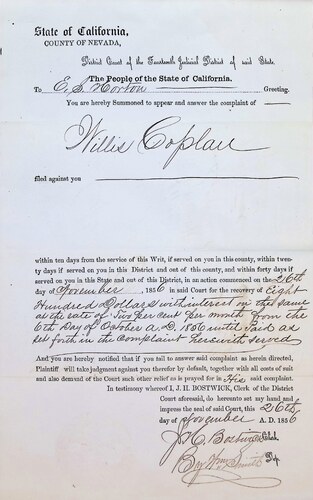 State of California,
COUNTY OF NEVADA,
District Court of the Fourteenth Judicial District of said State.
The People of the State of California.
To E. S. Horton Greeting.
You are hereby Summoned to appear and answer the complaint of
Willis Coplan
filed against you
within ten days from the service of this Writ, if served on you in this county, within twen-
ty days if served on you in this District and out of this county, and within forty days if
served on you in this State and out of this District, in an action commenced on the 26th
day of November, 1856 in said Court for the recovery of Eight
Hundred Dollars with interest on the same
at the rate of Two per cent per month from the
6th Day of October A. D. 1856 until paid as
set forth in the Complaint herewith served
And you are hereby notified that if you fail to answer said complaint as herein directed,
Plaintiff will take judgment against you therefor by default, together with all costs of suit
and also demand of the Court such other relief as is prayed for in His said complaint.
In testimony whereof I, J. H. BOSTWICK, Clerk of the District
Court aforesaid, do hereunto set my hand and
impress the seal of said Court, this 26th
day of November A. D. 1856
J. H. Bostwick Clerk.
By Smith Dep